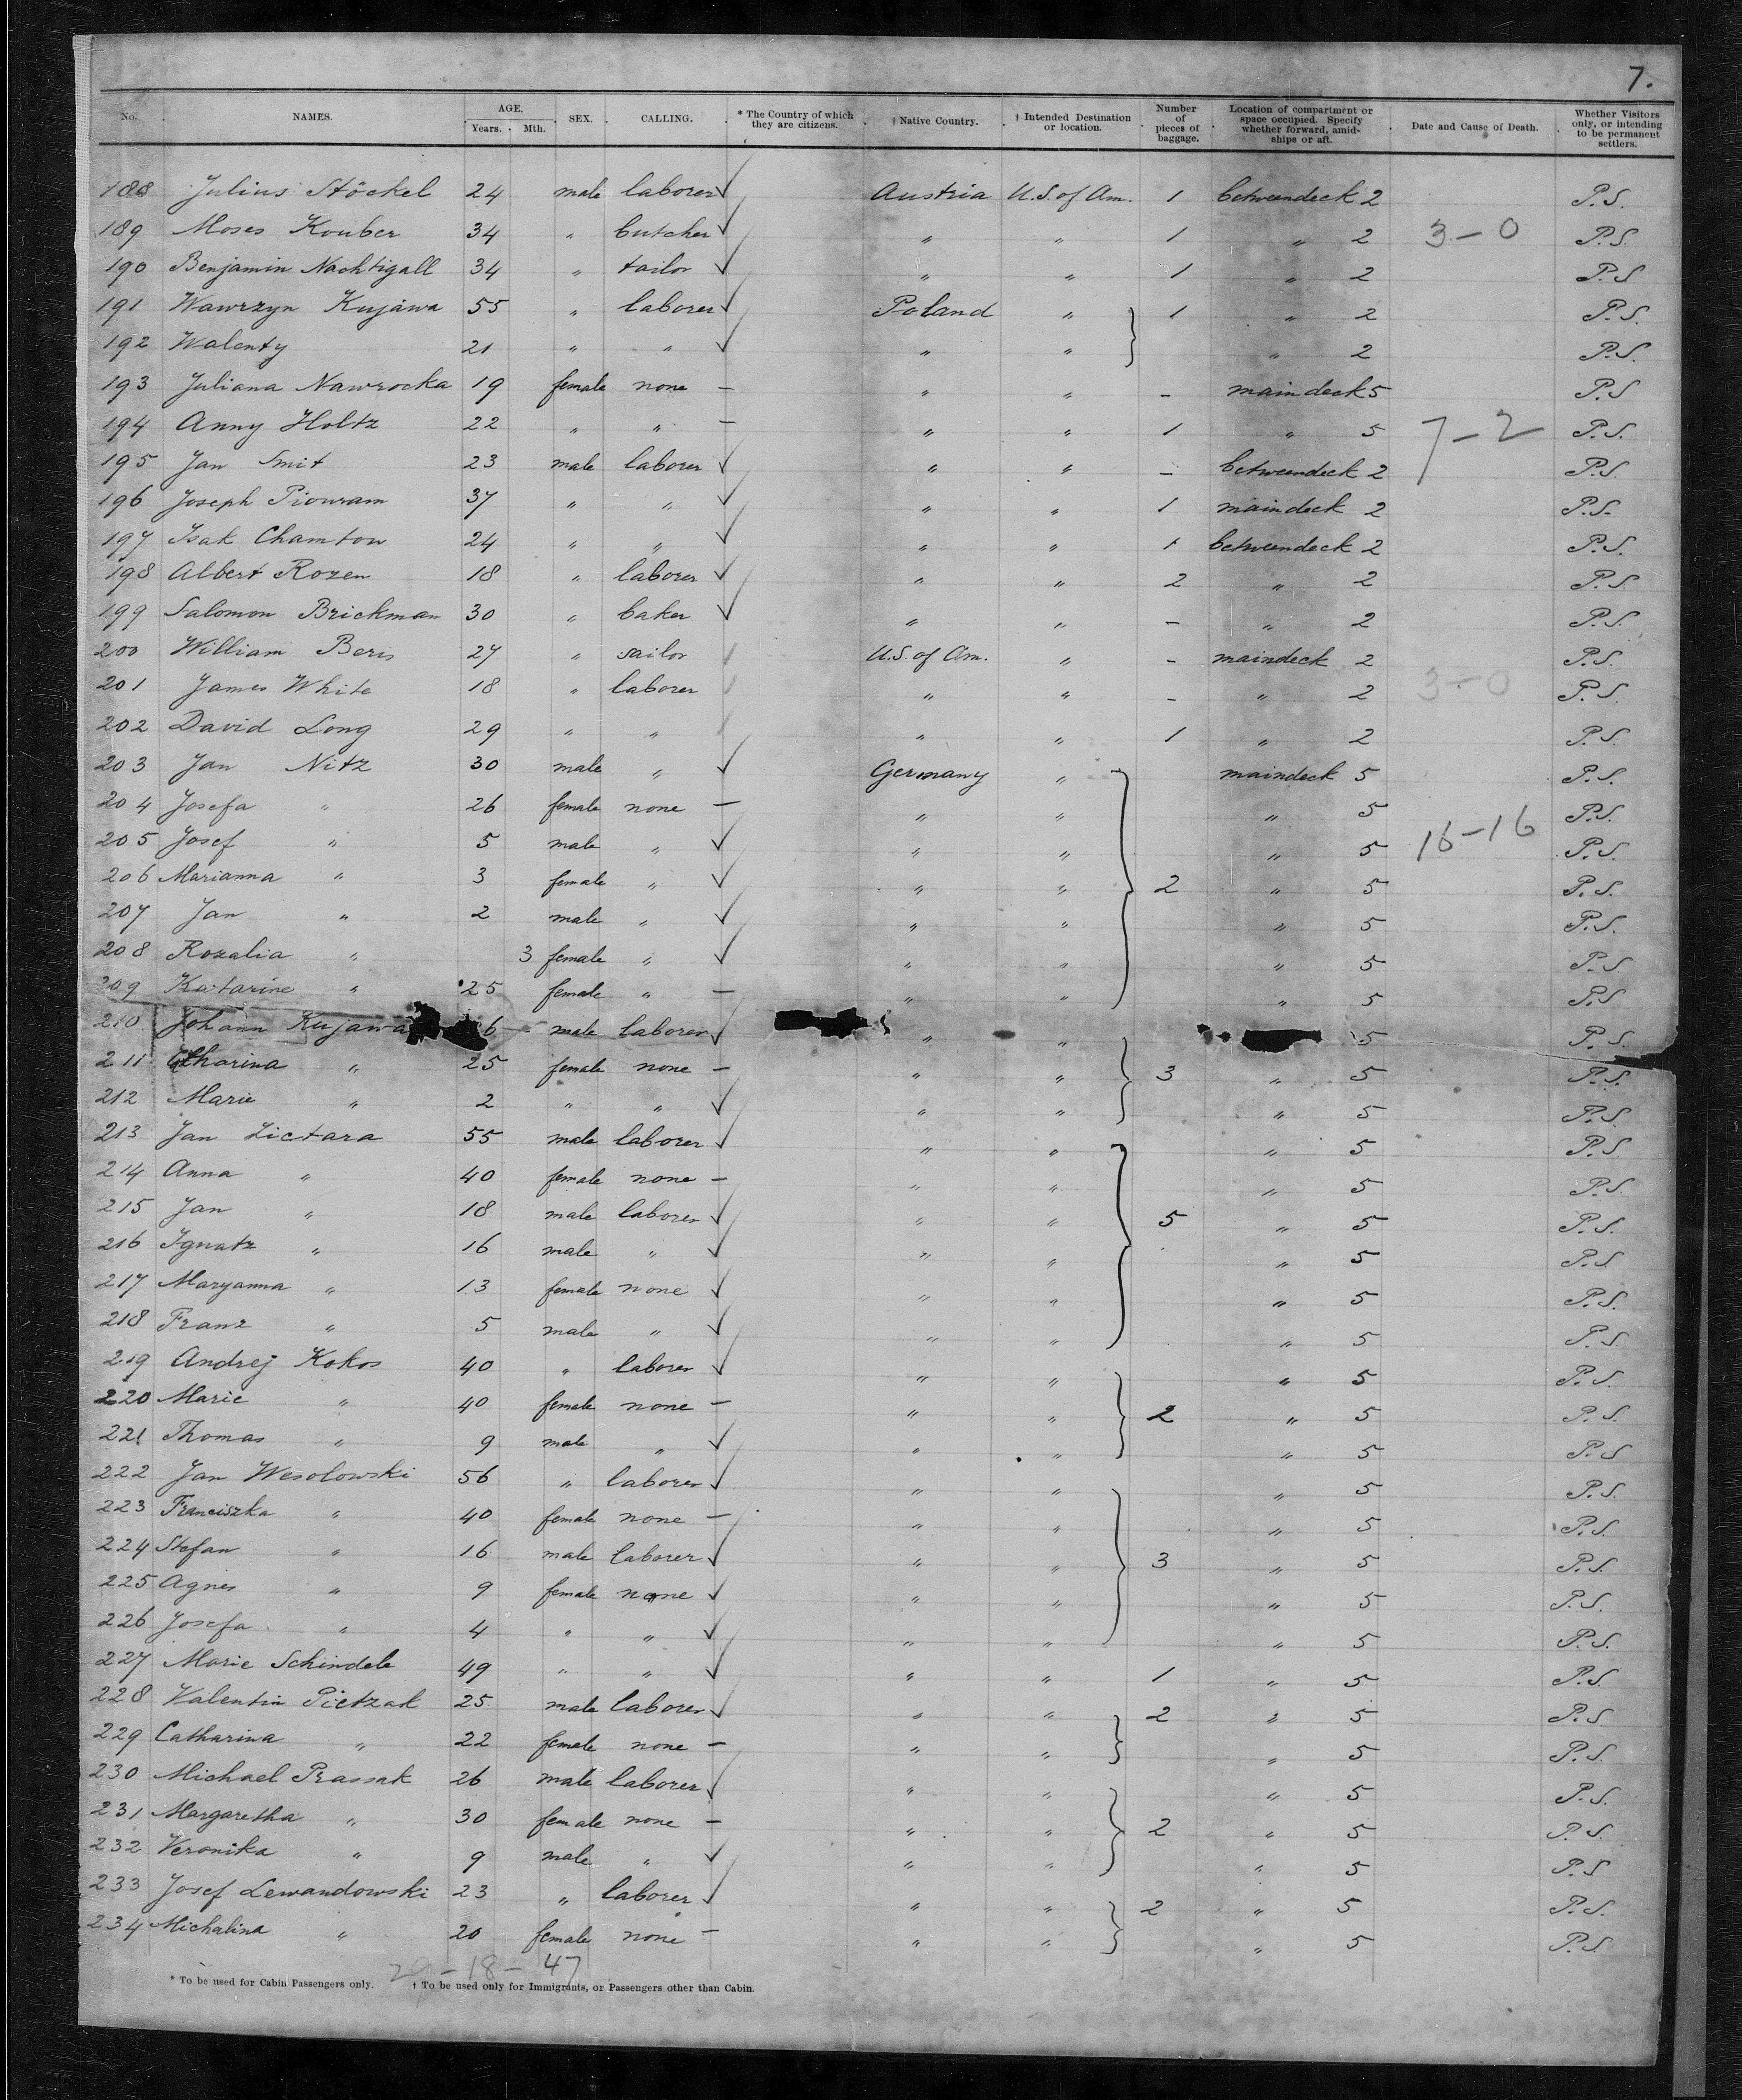 7.
No. NAMES. AGE. Years. Mth. SEX. CALLING. * The Country of which they are citizens. † Native Country. † Intended Destination or location. Number of pieces of baggage. Location of compartment or space occupied. Specify whether forward, amidships or aft. Date and Cause of Death. Whether Visitors only, or intending to be permanent settlers.
188 Julius Stöckel 24 male laborer Austria U.S. of Am. 1 betweendeck 2 P.S.
189 Moses Kouber 34 " butcher " " 1 " 2 3-0 P.S.
190 Benjamin Nachtigall 34 " tailor " " 1 " 2 P.S
191 Wawrzyn Kujawa 55 " laborer Poland " 1 " 2 P.S.
192 Walenty 21 " " " " " 2 P.S.
193 Juliana Nawrocka 19 female none — " " - maindeck 5 P.S
194 Anny Holtz 22 " " — " " 1 " 5 7-2 P.S.
195 Jan Smit 23 male laborer " " - betweendeck 2 P.S.
196 Joseph Piouram 37 " " " " 1 maindeck 2 P.S.
197 Isak Chamtow 24 " " " " 1 betweendeck 2 P.S.
198 Albert Rozen 18 " laborer " " 2 " 2 P.S
199 Salomon Brickman 30 " baker " " - " 2 P.S.
200 William Beris 27 " sailor U.S. of Am. " - maindeck 2 P.S.
201 James White 18 " laborer " " - " 2 3-0 P.S.
202 David Long 29 " " " " 1 " 2 P.S.
203 Jan Nitz 30 male " Germany " maindeck 5 P.S.
204 Josefa " 26 female none — " " " 5 P.S.
205 Josef " 5 male " " " " 5 16-16 P.S.
206 Marianna " 3 female " " " 2 " 5 P.S.
207 Jan " 2 male " " " " 5 P.S.
208 Rozalia " 3 female " " " " 5 P.S
209 Katarine " 25 female " — " " " 5 P.S
210 Johann Kujawa 6 male laborer " " 5 P.S.
211 Catharina " 25 female none — " " 3 " 5 P.S.
212 Marie " 2 " " " " " 5 P.S.
213 Jan Lictara 55 male laborer " " " 5 P.S
214 Anna " 40 female none — " " " 5 P.S.
215 Jan " 18 male laborer " " 5 " 5 P.S.
216 Ignatz " 16 male " " " " 5 P.S
217 Maryanna " 13 female none " " " 5 P.S.
218 Franz " 5 male " " " " 5 P.S.
219 Andrej Kokos 40 " laborer " " " 5 P.S.
220 Marie " 40 female none — " " 2 " 5 P.S.
221 Thomas " 9 male " " " " 5 P.S
222 Jan Wesolowski 56 " laborer " " " 5 P.S.
223 Franciszka " 40 female none — " " " 5 P.S.
224 Stefan " 16 male laborer " " 3 " 5 P.S.
225 Agnes " 9 female none " " " 5 P.S.
226 Josefa " 4 " " " " " 5 P.S.
227 Marie Schindele 49 " " " " 1 " 5 P.S.
228 Valentin Pietzak 25 male laborer " " 2 " 5 P.S
229 Catharina " 22 female none — " " " 5 P.S.
230 Michael Prassak 26 male laborer " " " 5 P.S.
231 Margaretha " 30 female none — " " 2 " 5 P.S.
232 Veronika " 9 male " " " " 5 P.S
233 Josef Lewandowski 23 " laborer " " 2 " 5 P.S.
234 Michalina " 20 female none — " " " 5 P.S
29-18-47
* To be used for Cabin Passengers only. † To be used only for Immigrants, or Passengers other than Cabin.